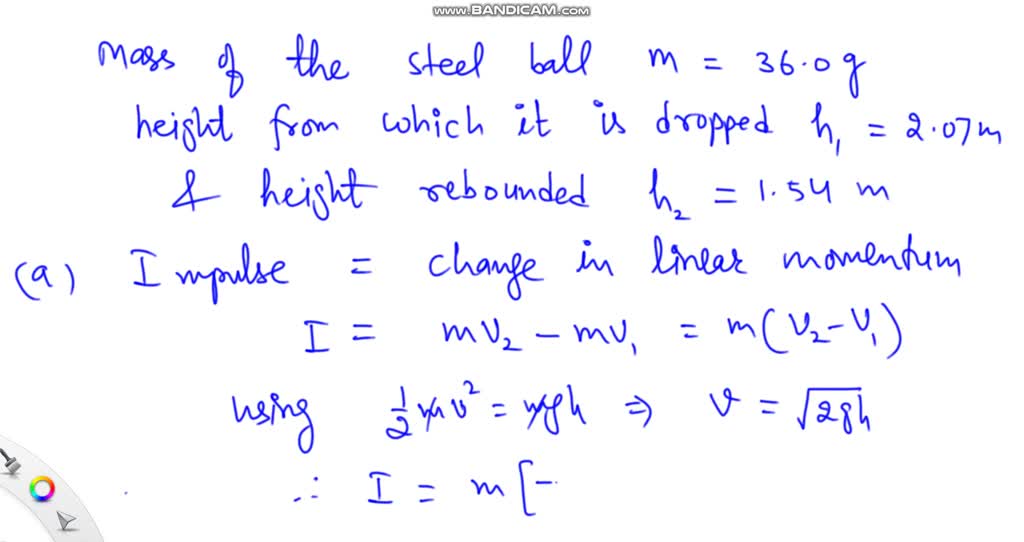 www.BANDICAM.com
Mass of the steel ball m = 36.0 g
height from which it is dropped h₁ = 2.07m
& height rebounded h₂ = 1.54 m
(a) Impulse = change in linear momentum
I = mv₂ - mv₁ = m(v₂-v₁)
using 1/2 mv² = mgh ⇒ v = √2gh
∴ I = m [-